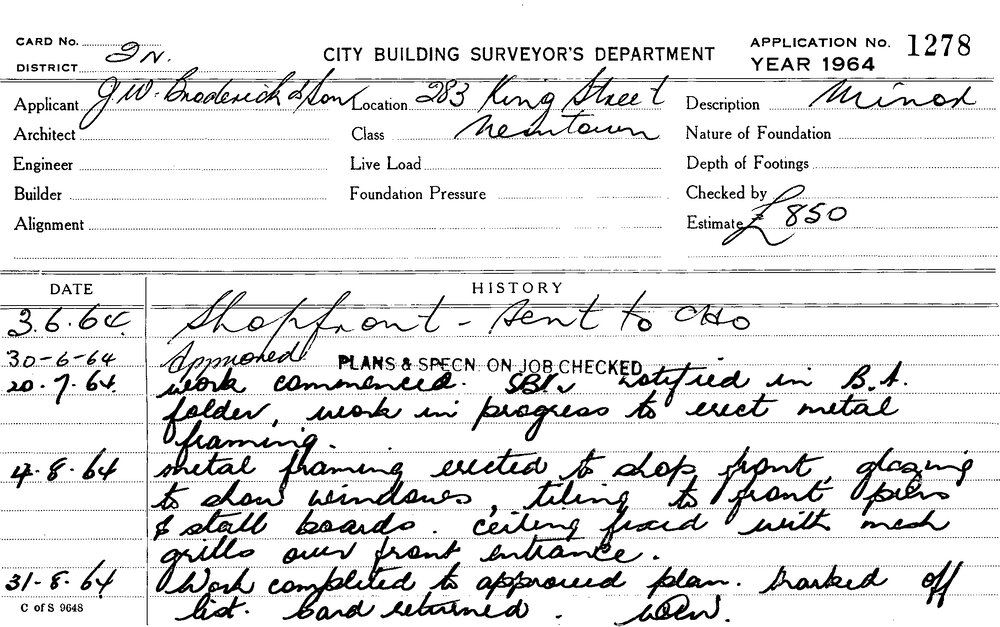 CARD No.
DISTRICT 2N.
CITY BUILDING SURVEYOR'S DEPARTMENT
APPLICATION No. 1278
YEAR 1964
Applicant J W. Broderick & Son Location 283 King Street Description Minor
Architect Class Newtown Nature of Foundation
Engineer Live Load Depth of Footings
Builder Foundation Pressure Checked by
Alignment Estimate £850
DATE HISTORY
3.6.64. Shopfront - sent to CHO
30-6-64 Approved PLANS & SPECN. ON JOB CHECKED
20.7.64. work commenced. notified in B.A.
folder, work in progress to erect metal
framing.
4.8.64 metal framing erected to shop front, glazing
to show windows, tiling to front piers
& stall boards. Ceiling fixed with mesh
grills over front entrance.
31-8.64 Work completed to approved plan. marked off
C of S 9648 list. Card returned.